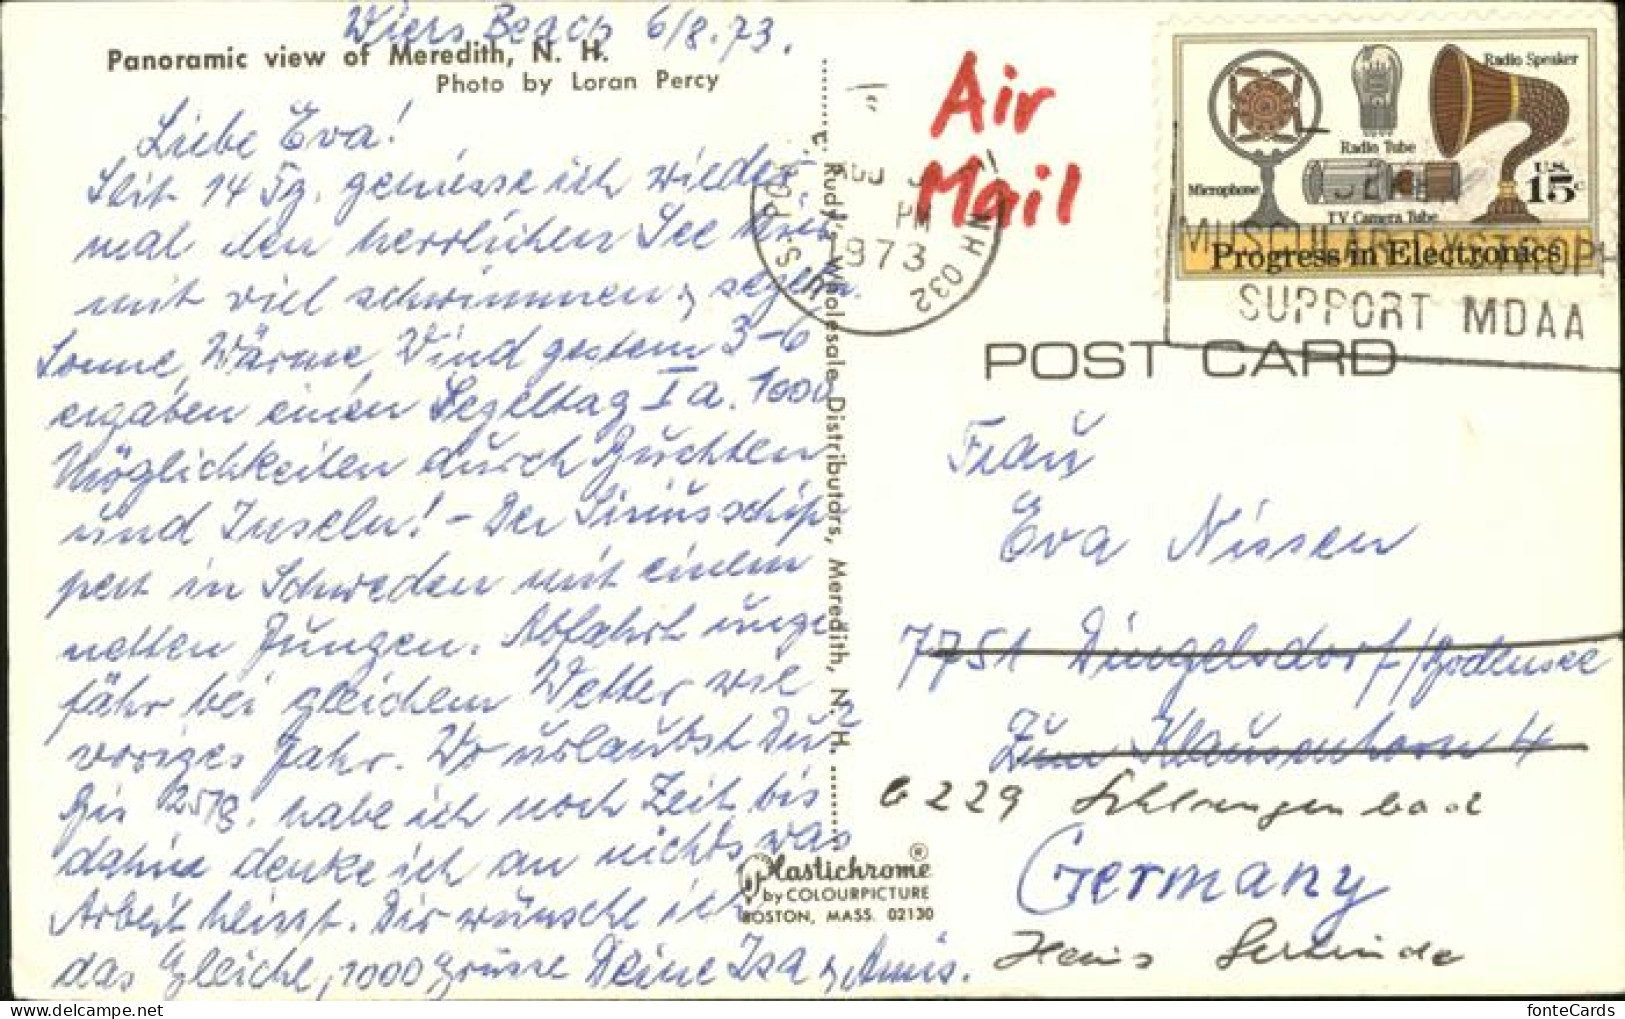 Wiers Beach 6/8.73.
Panoramic view of Meredith, N. H.
Photo by Loran Percy
Liebe Eva!
Seit 14 Tg. geniesse ich wieder
mal den herrlichen See hier
mit viel schwimmen, segeln.
Sonne, Wärme, Wind gestern 3-6
ergaben einen Segeltag I a. 1000
Möglichkeiten durch Buchten
und Inseln! - Der Sirius schip-
pert in Schweden mit einem
netten Jungen. Abfahrt unge-
fähr bei gleichem Wetter wie
voriges Jahr. Wo urlaubst Du?
Bis 25/8. habe ich noch Zeit bis
dahin denke ich an nichts was
Arbeit heisst. Dir wünsche ich
das Gleiche, 1000 Grüsse Deine Isa
Rudy's Wholesale Distributors, Meredith, N. H.
Plastichrome ®
by COLOURPICTURE
BOSTON, MASS. 02130
Air
Mail
U.S. PO
NH 032
PM
1973
Radio Speaker
Radio Tube
Microphone
TV Camera Tube
U.S.
15c
Progress in Electronics
MUSCULAR DYSTROPH
SUPPORT MDAA
POST CARD
Frau
Eva Nissen
7751 Dingelsdorf/Bodensee
Zum Klausenhorn 4
6229 Schlangenbad
Germany
Haus Gertrude